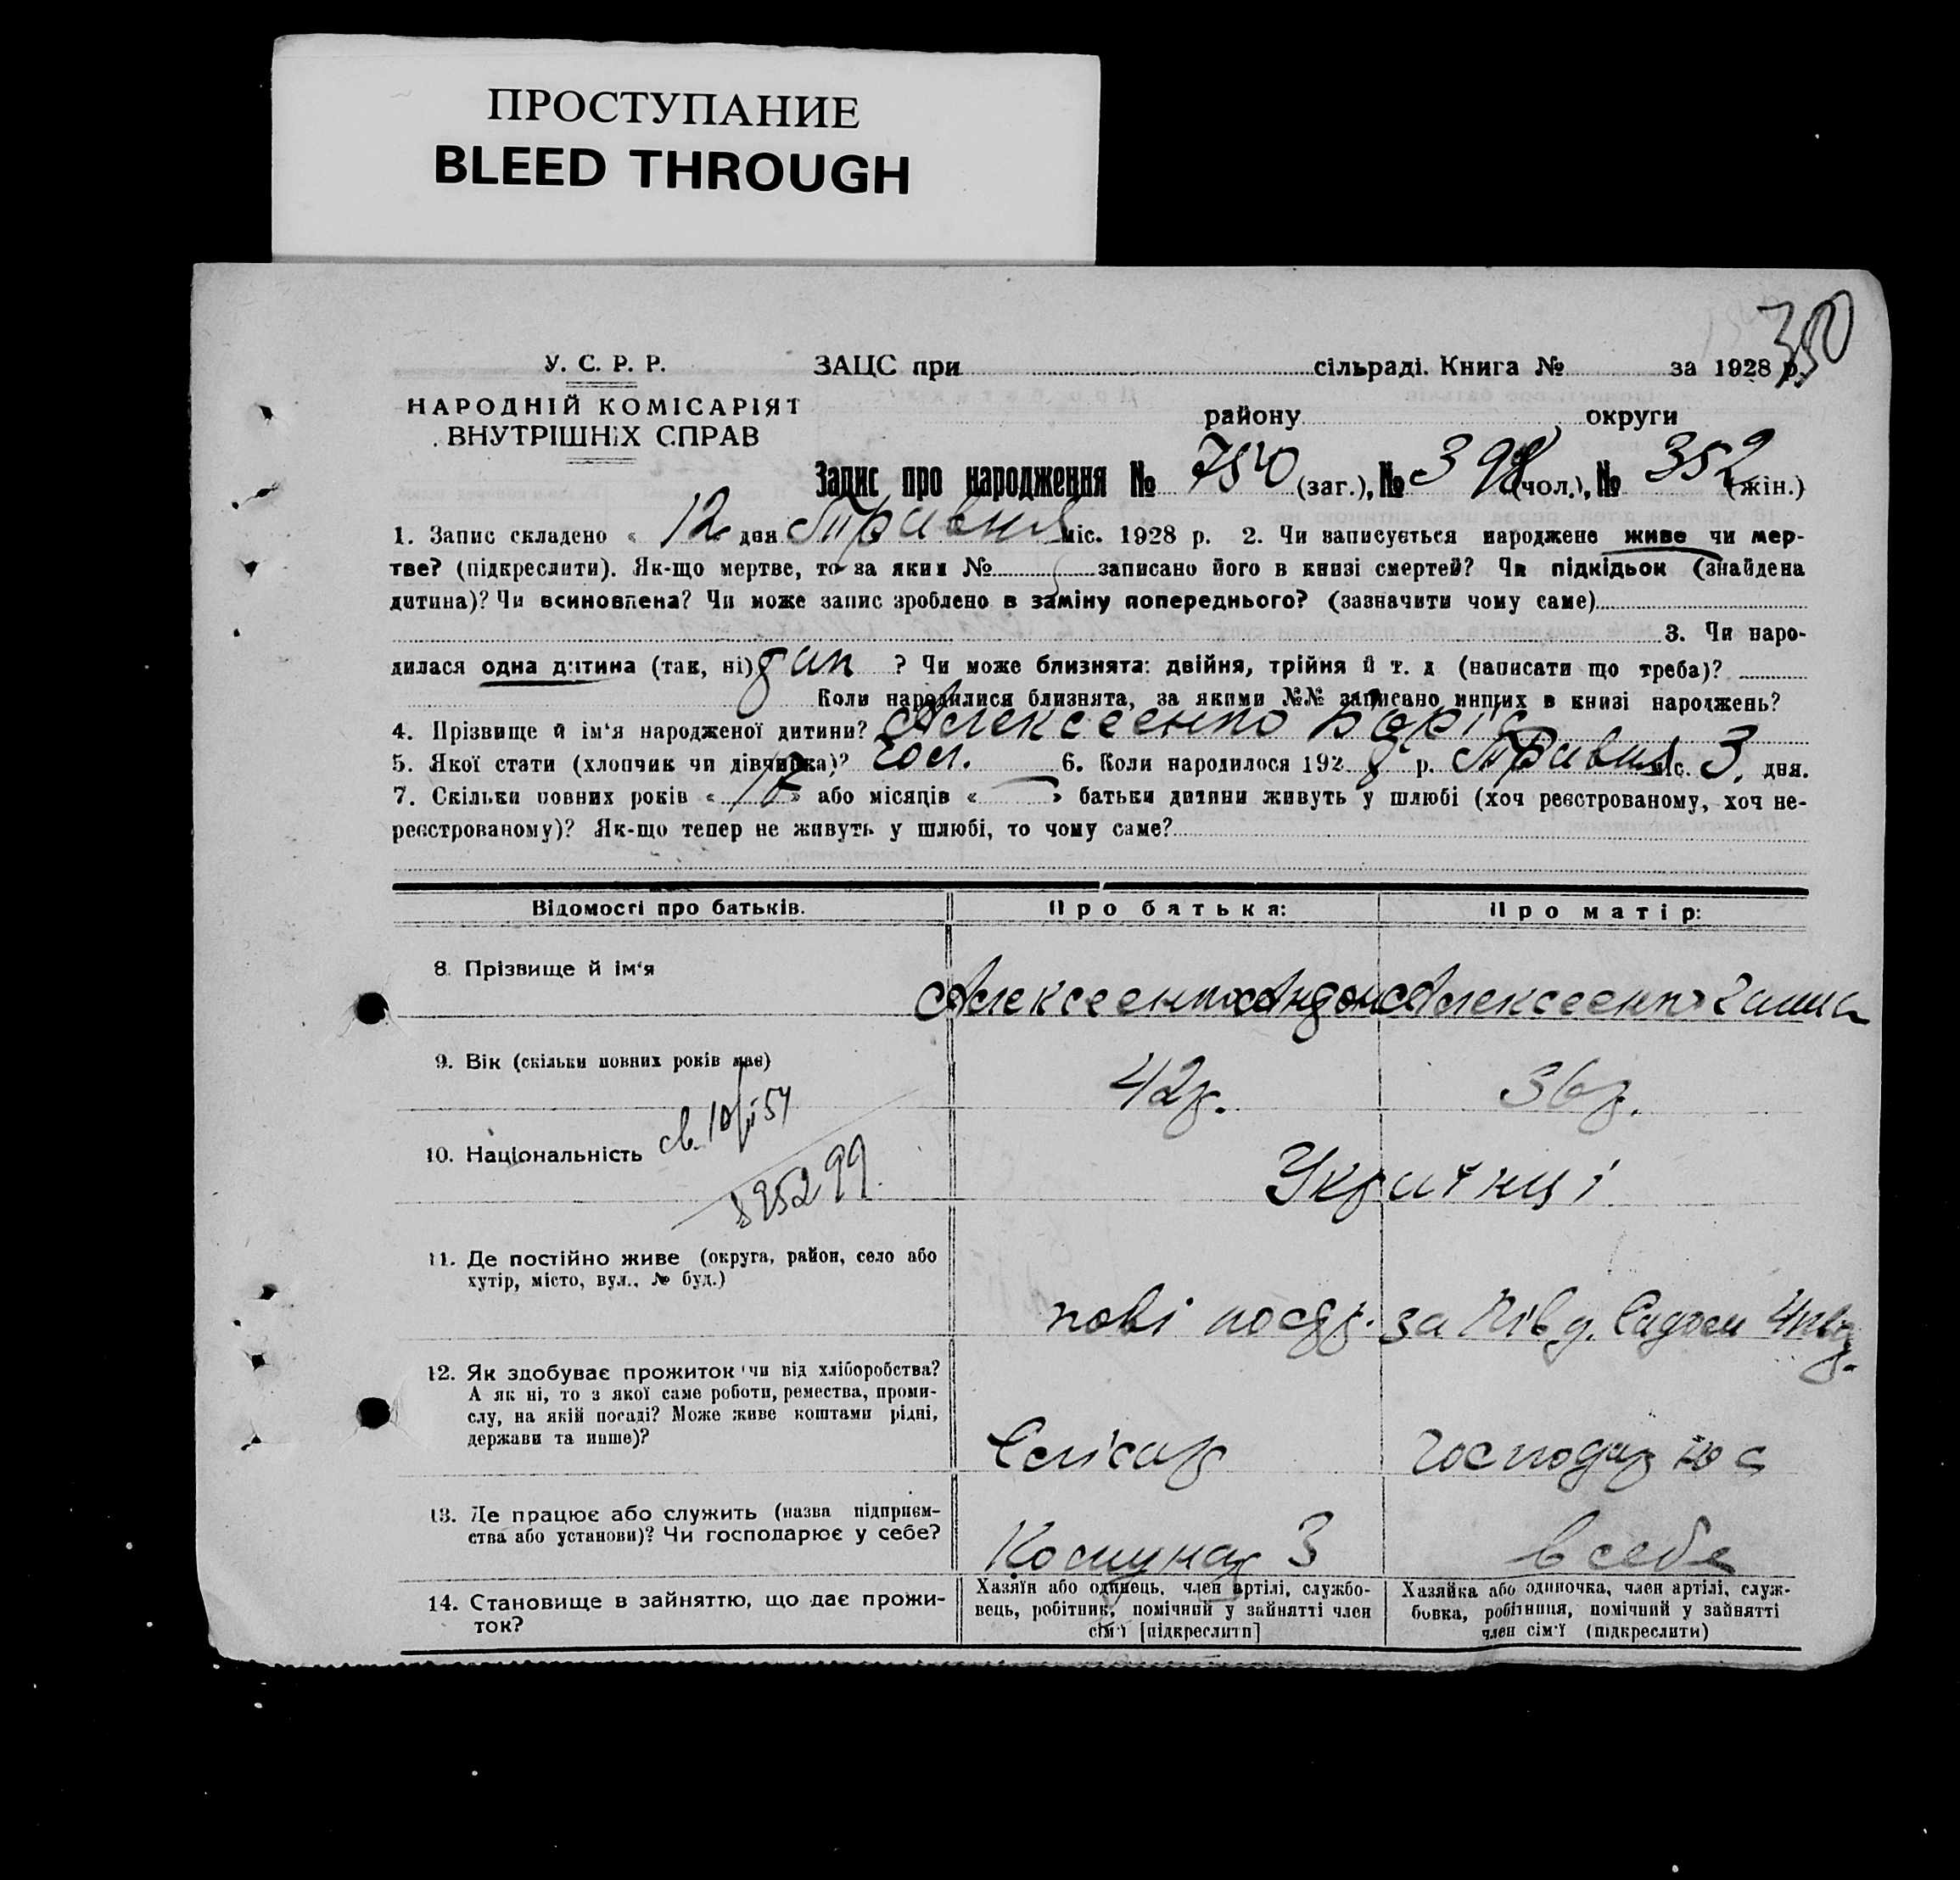 ПРОСТУПАНИЕ
BLEED THROUGH
350
У. С. Р. Р.
НАРОДНІЙ КОМІСАРІЯТ
ВНУТРІШНІХ СПРАВ
ЗАЦС при сільраді. Книга № за 1928 р.
району округи
Запис про народження № 750 (заг.), № 398 (чол.), № 352 (жін.)
1. Запис складено « 12 дня Травня міс. 1928 р. 2. Чи записується народжене живе чи мер-
тве? (підкреслити). Як-що мертве, то за яким № записано його в книзі смертей? Чи підкідьок (знайдена
дитина)? Чи всиновлена? Чи може запис зроблено в заміну попереднього? (зазначити чому саме)
3. Чи наро-
дилася одна дитина (так, ні) ? Чи може близнята: двійня, трійня й т. д (написати що треба)?
Коли народилися близнята, за якими №№ записано инших в книзі народжень?
4. Прізвище й ім'я народженої дитини? Алексеенко Боріс
5. Якої стати (хлопчик чи дівчинка)? чол. 6. Коли народилося 1928 р. Травня міс. 3. дня.
7. Скільки повних років « » або місяців « » батьки дитини живуть у шлюбі (хоч реєстрованому, хоч не-
реєстрованому)? Як-що тепер не живуть у шлюбі, то чому саме?
Відомості про батьків. Про батька: Про матір:
8. Прізвище й ім'я Алексеенко Алексеенко
9. Вік (скільки повних років має) 42р. 36р.
св. 10/ 54
10. Національність Українці
895299
11. Де постійно живе (округа, район, село або
хутір, місто, вул., № буд.)
нові за Півд. Садом
12. Як здобуває прожиток (чи від хліборобства?
А як ні, то з якої саме роботи, ремества, проми-
слу, на якій посаді? Може живе коштами рідні,
держави та инше)?
Слісар Господарює
13. Де працює або служить (назва підприєм-
ства або установи)? Чи господарює у себе?
Комунар 3 в себе
14. Становище в зайняттю, що дає прожи-
ток?
Хазяїн або одинець, член артілі, службо-
вець, робітник, помічний у зайнятті член
сім'ї [підкреслити]
Хазяйка або одиночка, член артілі, служ-
бовка, робітниця, помічний у зайнятті
член сім'ї (підкреслити)